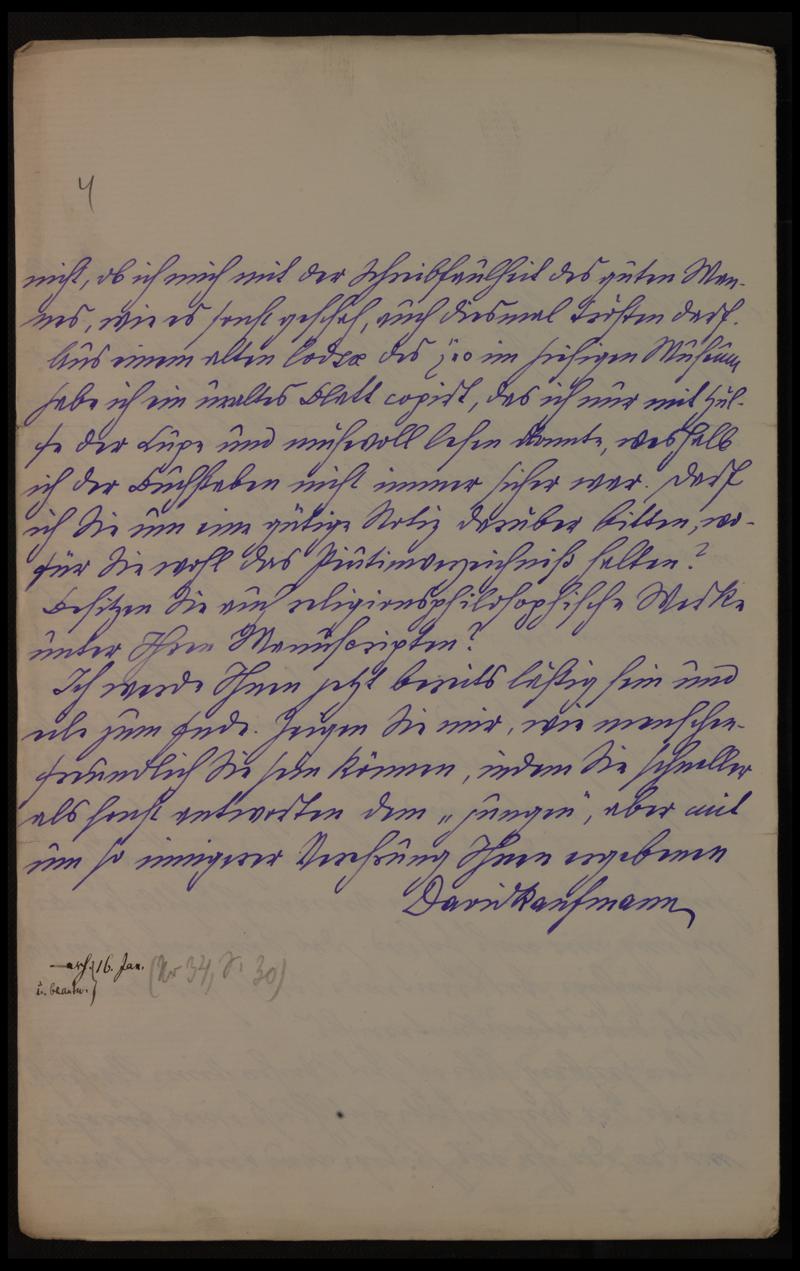 4
nicht, ob ich mich mit der Schreibfaulheit des guten Man-
nes, wie es sonst geschah, auch diesmal trösten darf.
Aus einem alten Codex des im hiesigen Museum
habe ich ein uraltes Blatt copirt, das ich nur mit Hül-
fe der Lupe und mühevoll lesen konnte, weshalb
ich der Buchstaben nicht immer sicher war. Darf
ich Sie um eine gütige Notiz darüber bitten, wo-
für Sie wohl das Piutimverzeichniß halten?
Besitzen Sie auch religionsphilosophische Werke
unter Ihren Manuscripten?
Ich werde Ihnen jetzt bereits lästig sein und
eile zum Ende. Zeigen Sie mir, wie menschen-
freundlich Sie sein können, indem Sie schneller
als sonst antworten dem „jungen“, aber mit
um so innigerer Verehrung Ihnen ergebenen
David Kaufmann
16. Jan. (Nr 34, S. 30)
u. beantw.